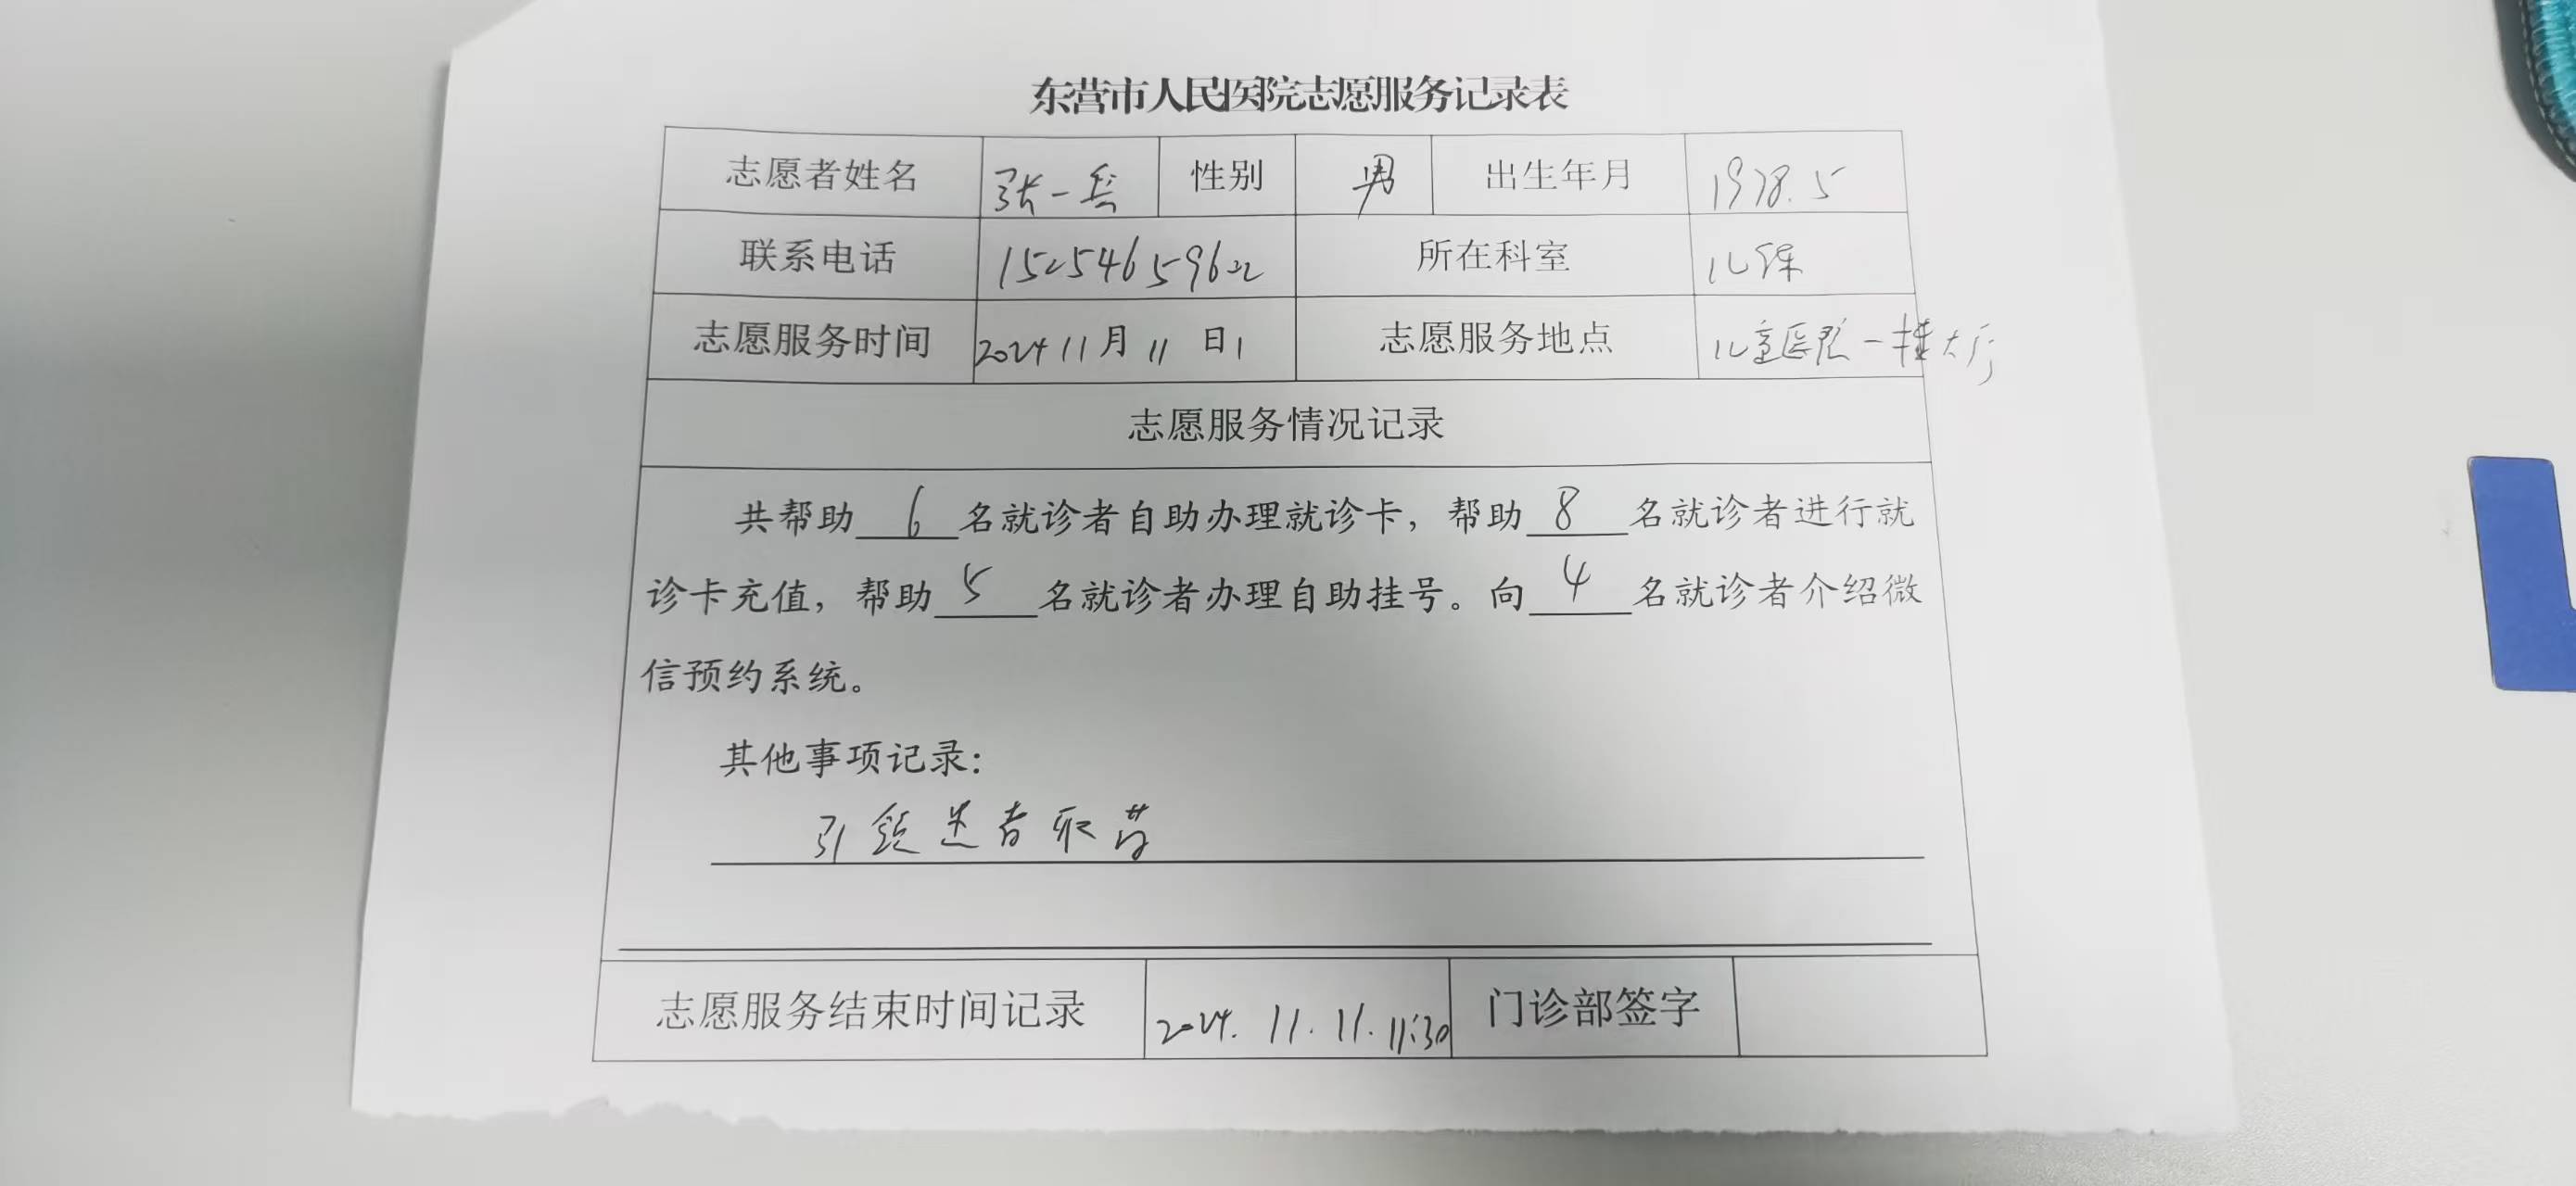 东营市人民医院志愿服务记录表
志愿者姓名 张一兵 性别 男 出生年月 1978.5
联系电话 所在科室 儿保
志愿服务时间 2024 11月 11 日1 志愿服务地点 儿童医院一楼大厅
志愿服务情况记录
共帮助 6 名就诊者自助办理就诊卡，帮助 8 名就诊者进行就
诊卡充值，帮助 5 名就诊者办理自助挂号。向 4 名就诊者介绍微
信预约系统。
其他事项记录：
引领患者取药
志愿服务结束时间记录 2024.11.11.11:30 门诊部签字